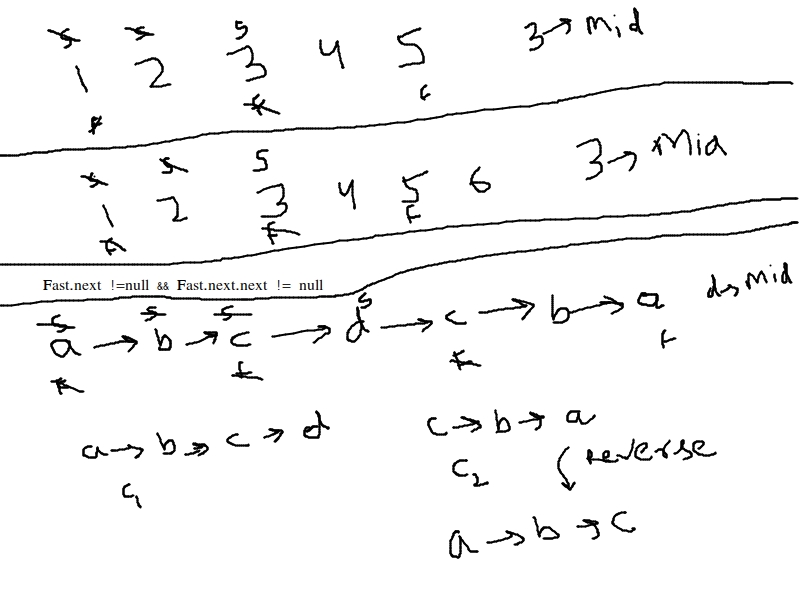 S S S
1 2 3 4 5 3 → Mid
F F F
S S S
1 2 3 4 5 6 3 → Mid
F F F
Fast.next !=null && Fast.next.next != null
S S S S
a → b → c → d → c → b → a d → Mid
F F F F
a → b → c → d c → b → a
C1 C2 reverse
a → b → c